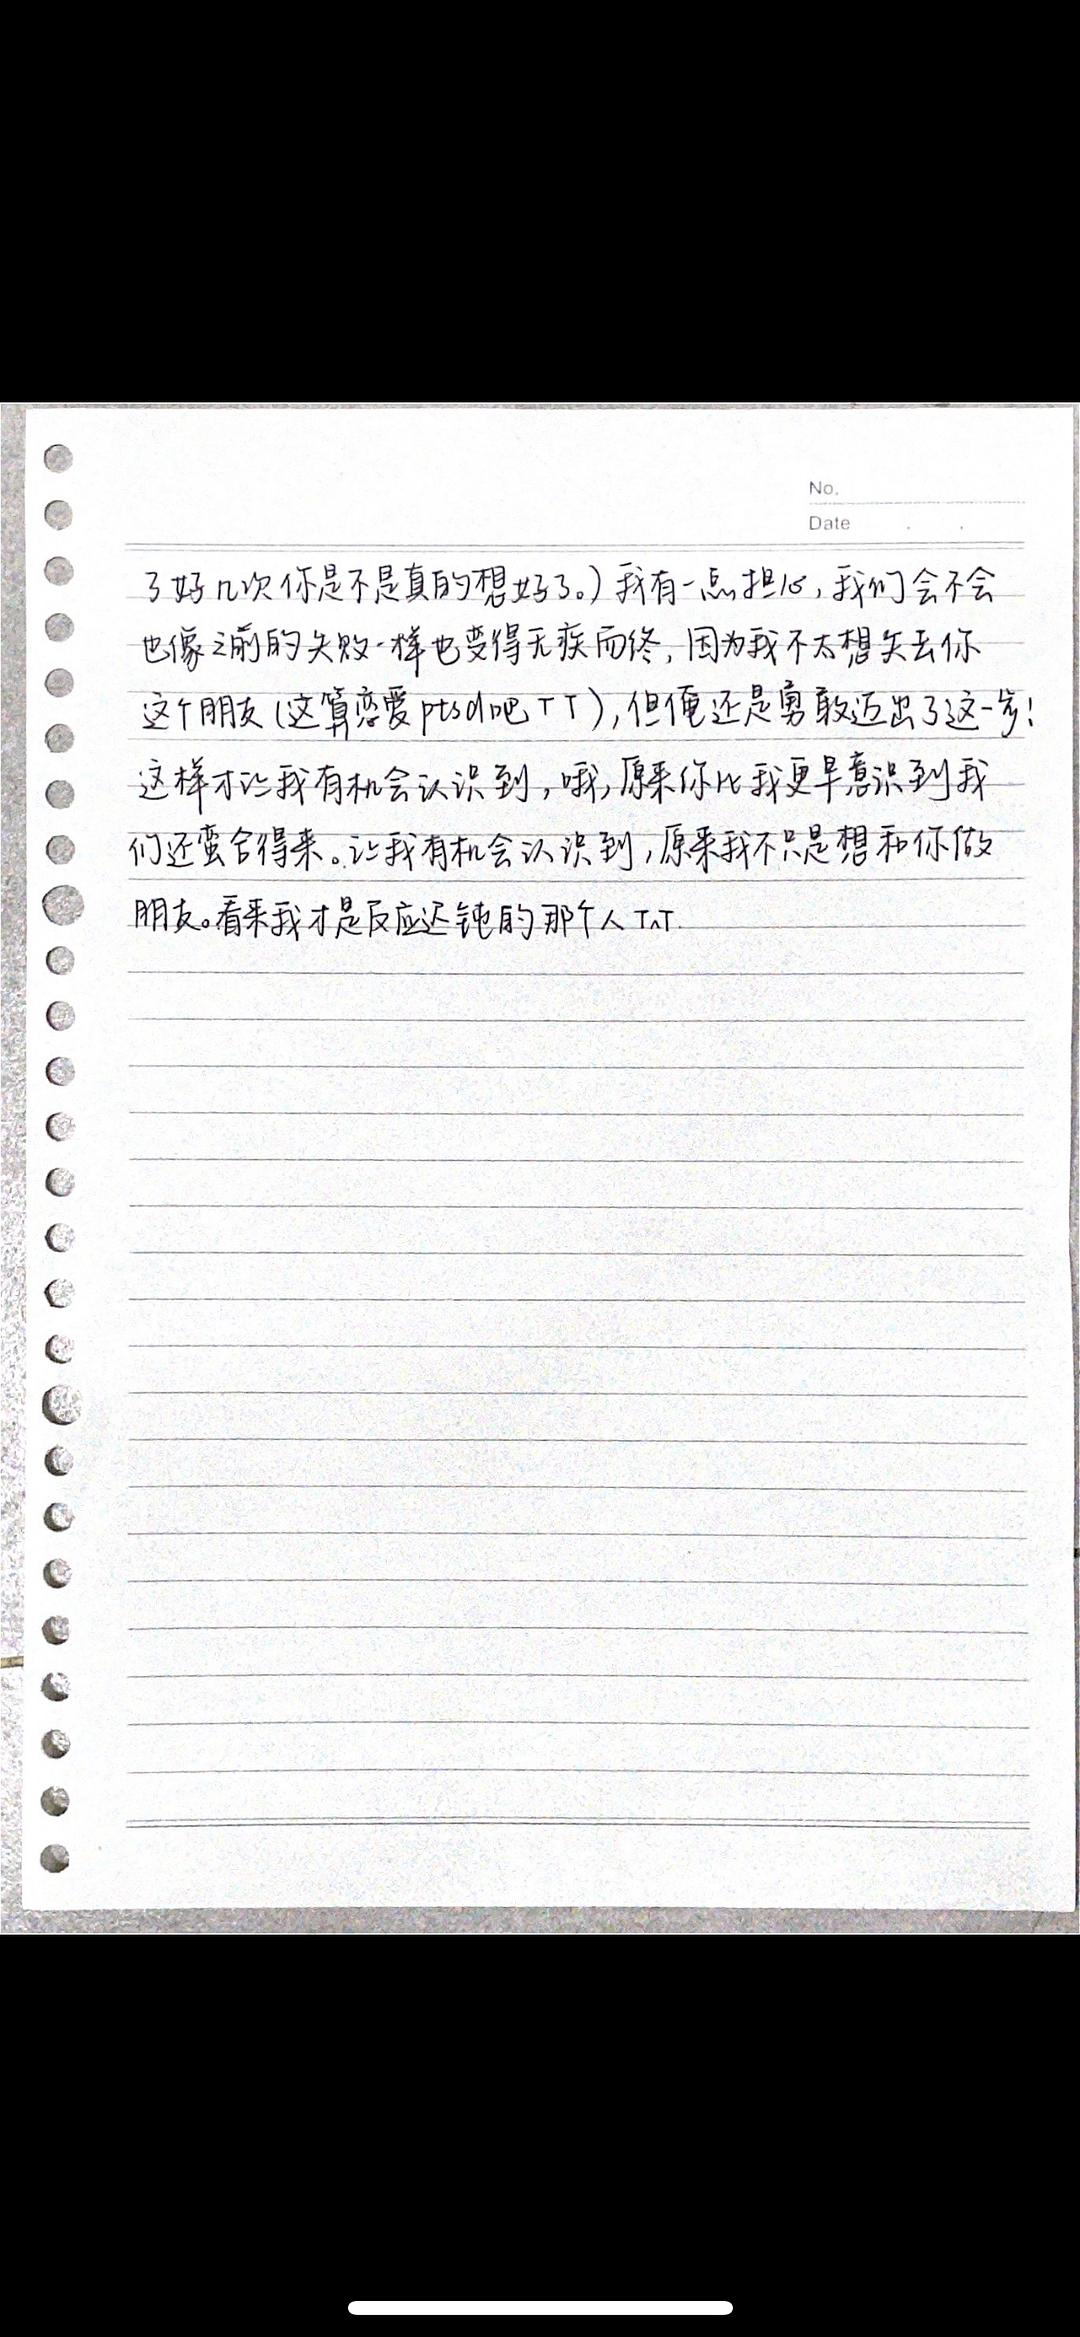 No.
Date
了好几次你是不是真的想好了。）我有一点担心，我们会不会
也像之前的失败一样也变得无疾而终，因为我不太想失去你
这个朋友（这算恋爱ptsd吧TT），但俺还是勇敢迈出了这一步！
这样才让我有机会认识到，哦，原来你比我更早意识到我
们还蛮合得来。让我有机会认识到，原来我不只是想和你做
朋友。看来我才是反应迟钝的那个人TnT.